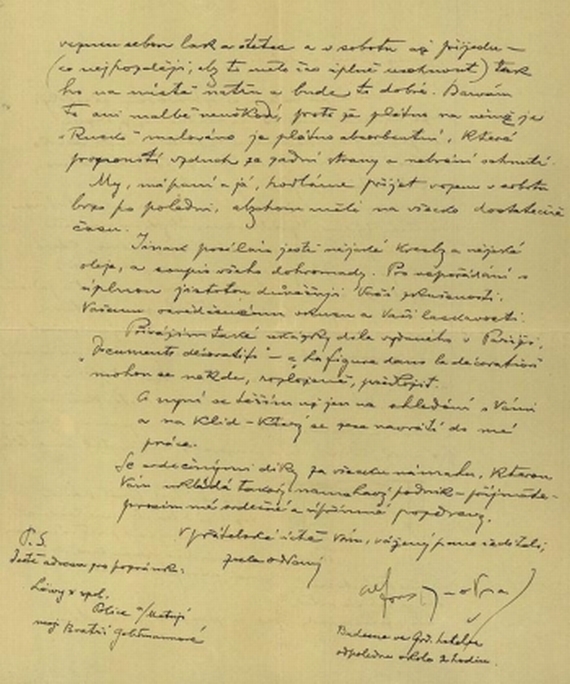 vezmu sebou lak a štětec a v sobotu až přijedu –
(co nejpozději, aby to mělo čas úplně uschnout) tak
ho na místě natřu a bude to dobré. Barvám
to ani malbě neuškodí, proto že plátno na němž je
"Rusko" malováno je plátno absorbentní, které
propouští vzduch ze zadní strany a nebrání schnutí.
My, má paní a já, hodláme přijet vozem v sobotu
brzo po poledni, abychom měli na všecko dostatečně
času.
Jinak posílám ještě nějaké kresby a nějaké
oleje, a soupis všeho dohromady. Pro uspořádání s
úplnou jistotou důvěřuji Vaší zkušenosti,
Vašemu osvědčenému vkusu a Vaší laskavosti.
Přivážím také ukázky díla vydaného v Paříži,
"Documents décoratifs" – a "la figure dans le décoration"
mohou se někde, rozložené, předložit.
A nyní se těším už jen na shledání s Vámi
a na klid – který se zase navrátí do mé
práce.
Se srdečnými díky za všecku námahu, kterou
Vám ukládá takový namahavý podnik – přijměte –
prosím mé srdečné a upřímné pozdravy.
V přátelské úctě Vám, vážený pane řediteli,
zcela oddaný
P.S.
Ještě adresa po
Löwy & spol.
Police n/Metují
mají Bratři
Budeme ve Grd. hotelu
odpoledne okolo 2 hodin.